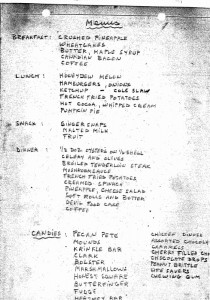 Menus
BREAKFAST: CRUSHED PINEAPPLE
WHEATCAKES
BUTTER, MAPLE SYRUP
CANADIAN BACON
COFFEE
LUNCH: HONEYDEW MELON
HAMBURGERS, ONIONS
KETCHUP - COLE SLAW
FRENCH FRIED POTATOES
HOT COCOA, WHIPPED CREAM
PUMPKIN PIE
SNACK: GINGER SNAPS
MALTED MILK
FRUIT
DINNER: 1/2 DOZ OYSTERS ON 1/2 SHELL
CELERY AND OLIVES
BROILED TENDERLOIN STEAK
MUSHROOM SAUCE
FRENCH FRIED POTATOES
CREAMED SPINACH
PINEAPPLE, CHEESE SALAD
SOFT ROLLS AND BUTTER
DEVIL FOOD CAKE
COFFEE
CANDIES: PECAN PETE
MOUNDS
KRINKLE BAR
CLARK
BOLSTER
MARSHMALLOWS
HONEST SQUARE
BUTTERFINGER
FUDGE
HERSHEY BAR
DINNER
ASSORTED CHOCOLATES
CARAMELS
CHERRY FILLED
CHOCOLATE DROPS
PEANUT BRITTLE
LIFE SAVERS
CHEWING GUM